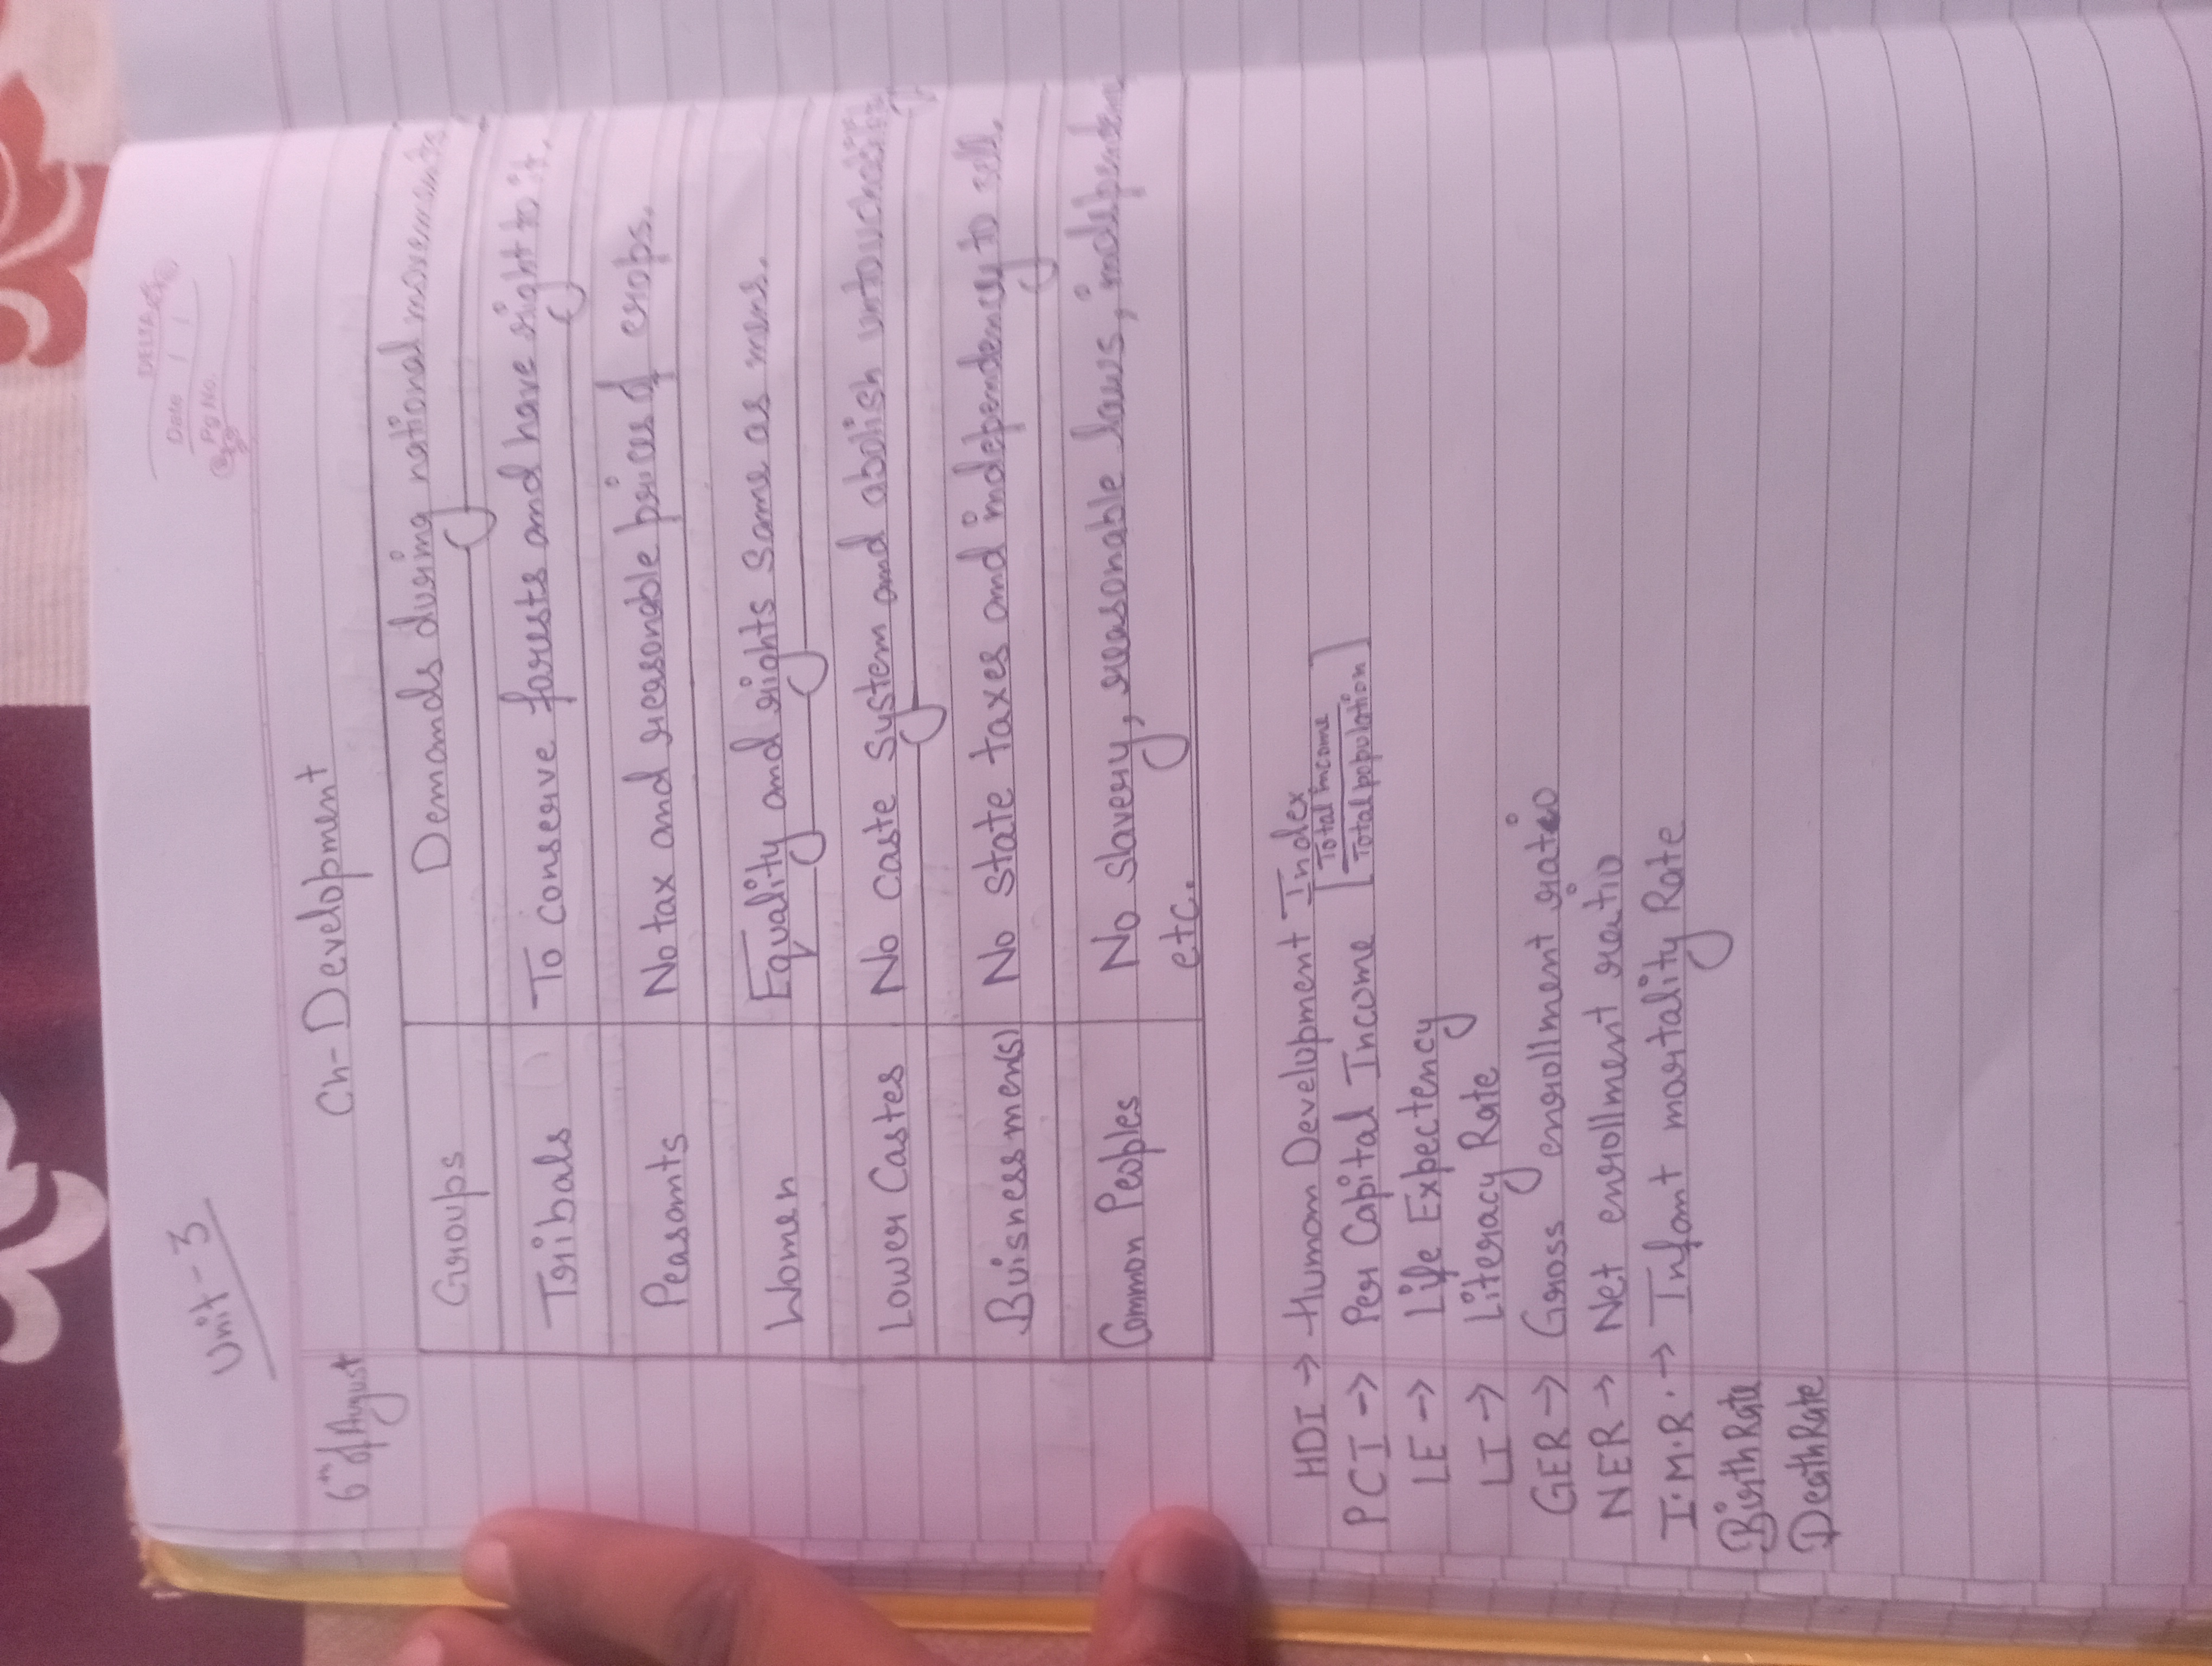 DELTA
Date / /
Pg No.
Unit-3
6th of August Ch-Development
Groups Demands during national movements
Tribals To conserve forests and have right to it.
Peasants No tax and reasonable prices of crops.
Women Equality and rights same as mens.
Lower Castes No caste system and abolish
Buisnessmen(s) No state taxes and independency to sell.
Common Peoples No slavery, reasonable laws,
etc.
HDI → Human Development Index
PCI → Per Capital Income [Total income
Total population]
LE → Life Expectency
LI → Literacy Rate
GER → Gross enrollment ratio
NER → Net enrollment ratio
I.M.R. → Infant mortality Rate
Birth Rate
Death Rate